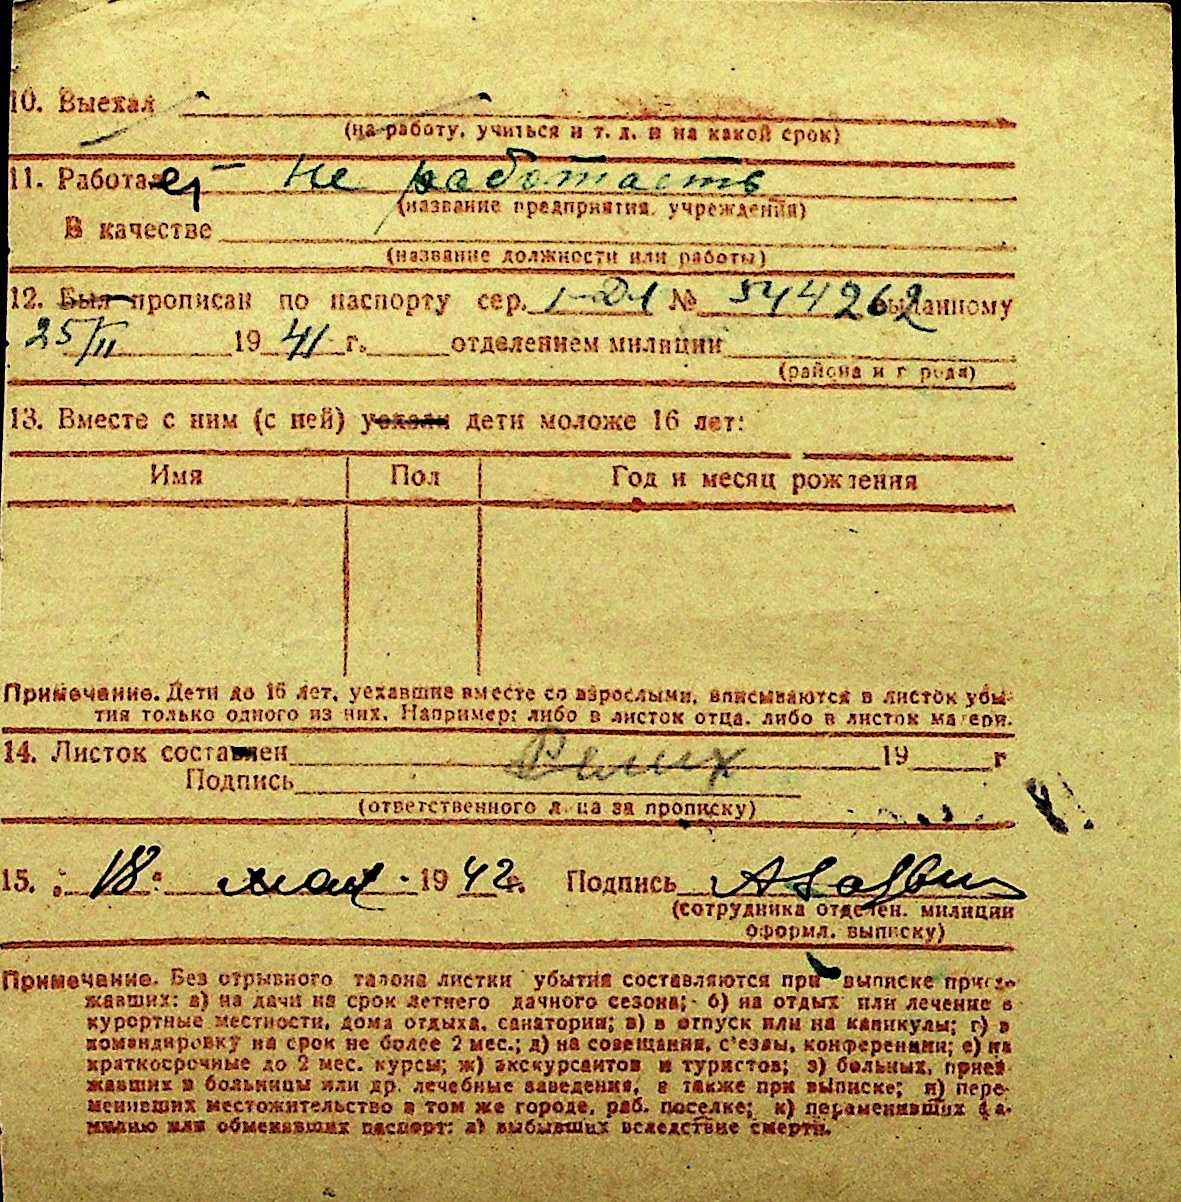 10. Выехал
(на работу, учиться и т. д. и на какой срок)
11. Работает не работаеть
(название предприятия, учреждения)
В качестве
(название должности или работы)
12. Был прописан по паспорту сер. № 544262 выданному
25/II 1941 г. отделением милиции
(района и города)
13. Вместе с ним (с ней) уехали дети моложе 16 лет:
Имя Пол Год и месяц рождения
Примечание. Дети до 16 лет, уехавшие вместе со взрослыми, вписываются в листок убы-
тия только одного из них. Например: либо в листок отца, либо в листок матери.
14. Листок составлен 19 г
Подпись
(ответственного лица за прописку)
15. „18“ мая 1942 г. Подпись
(сотрудника отделен. милиции
оформл. выписку)
Примечание. Без отрывного талона листки убытия составляются при выписке приез-
жавших: а) на дачи на срок летнего дачного сезона; б) на отдых или лечение в
курортные местности, дома отдыха, санатории; в) в отпуск или на каникулы; г) в
командировку на срок не более 2 мес.; д) на совещания, с'езды, конференции; е) на
краткосрочные до 2 мес. курсы; ж) экскурсантов и туристов; з) больных, приез-
жавших в больницы или др. лечебные заведения, а также при выписке; и) пере-
менивших местожительство в том же городе, раб. поселке; к) переменивших фа-
милию или обменявших паспорт; л) выбывших вследствие смерти.